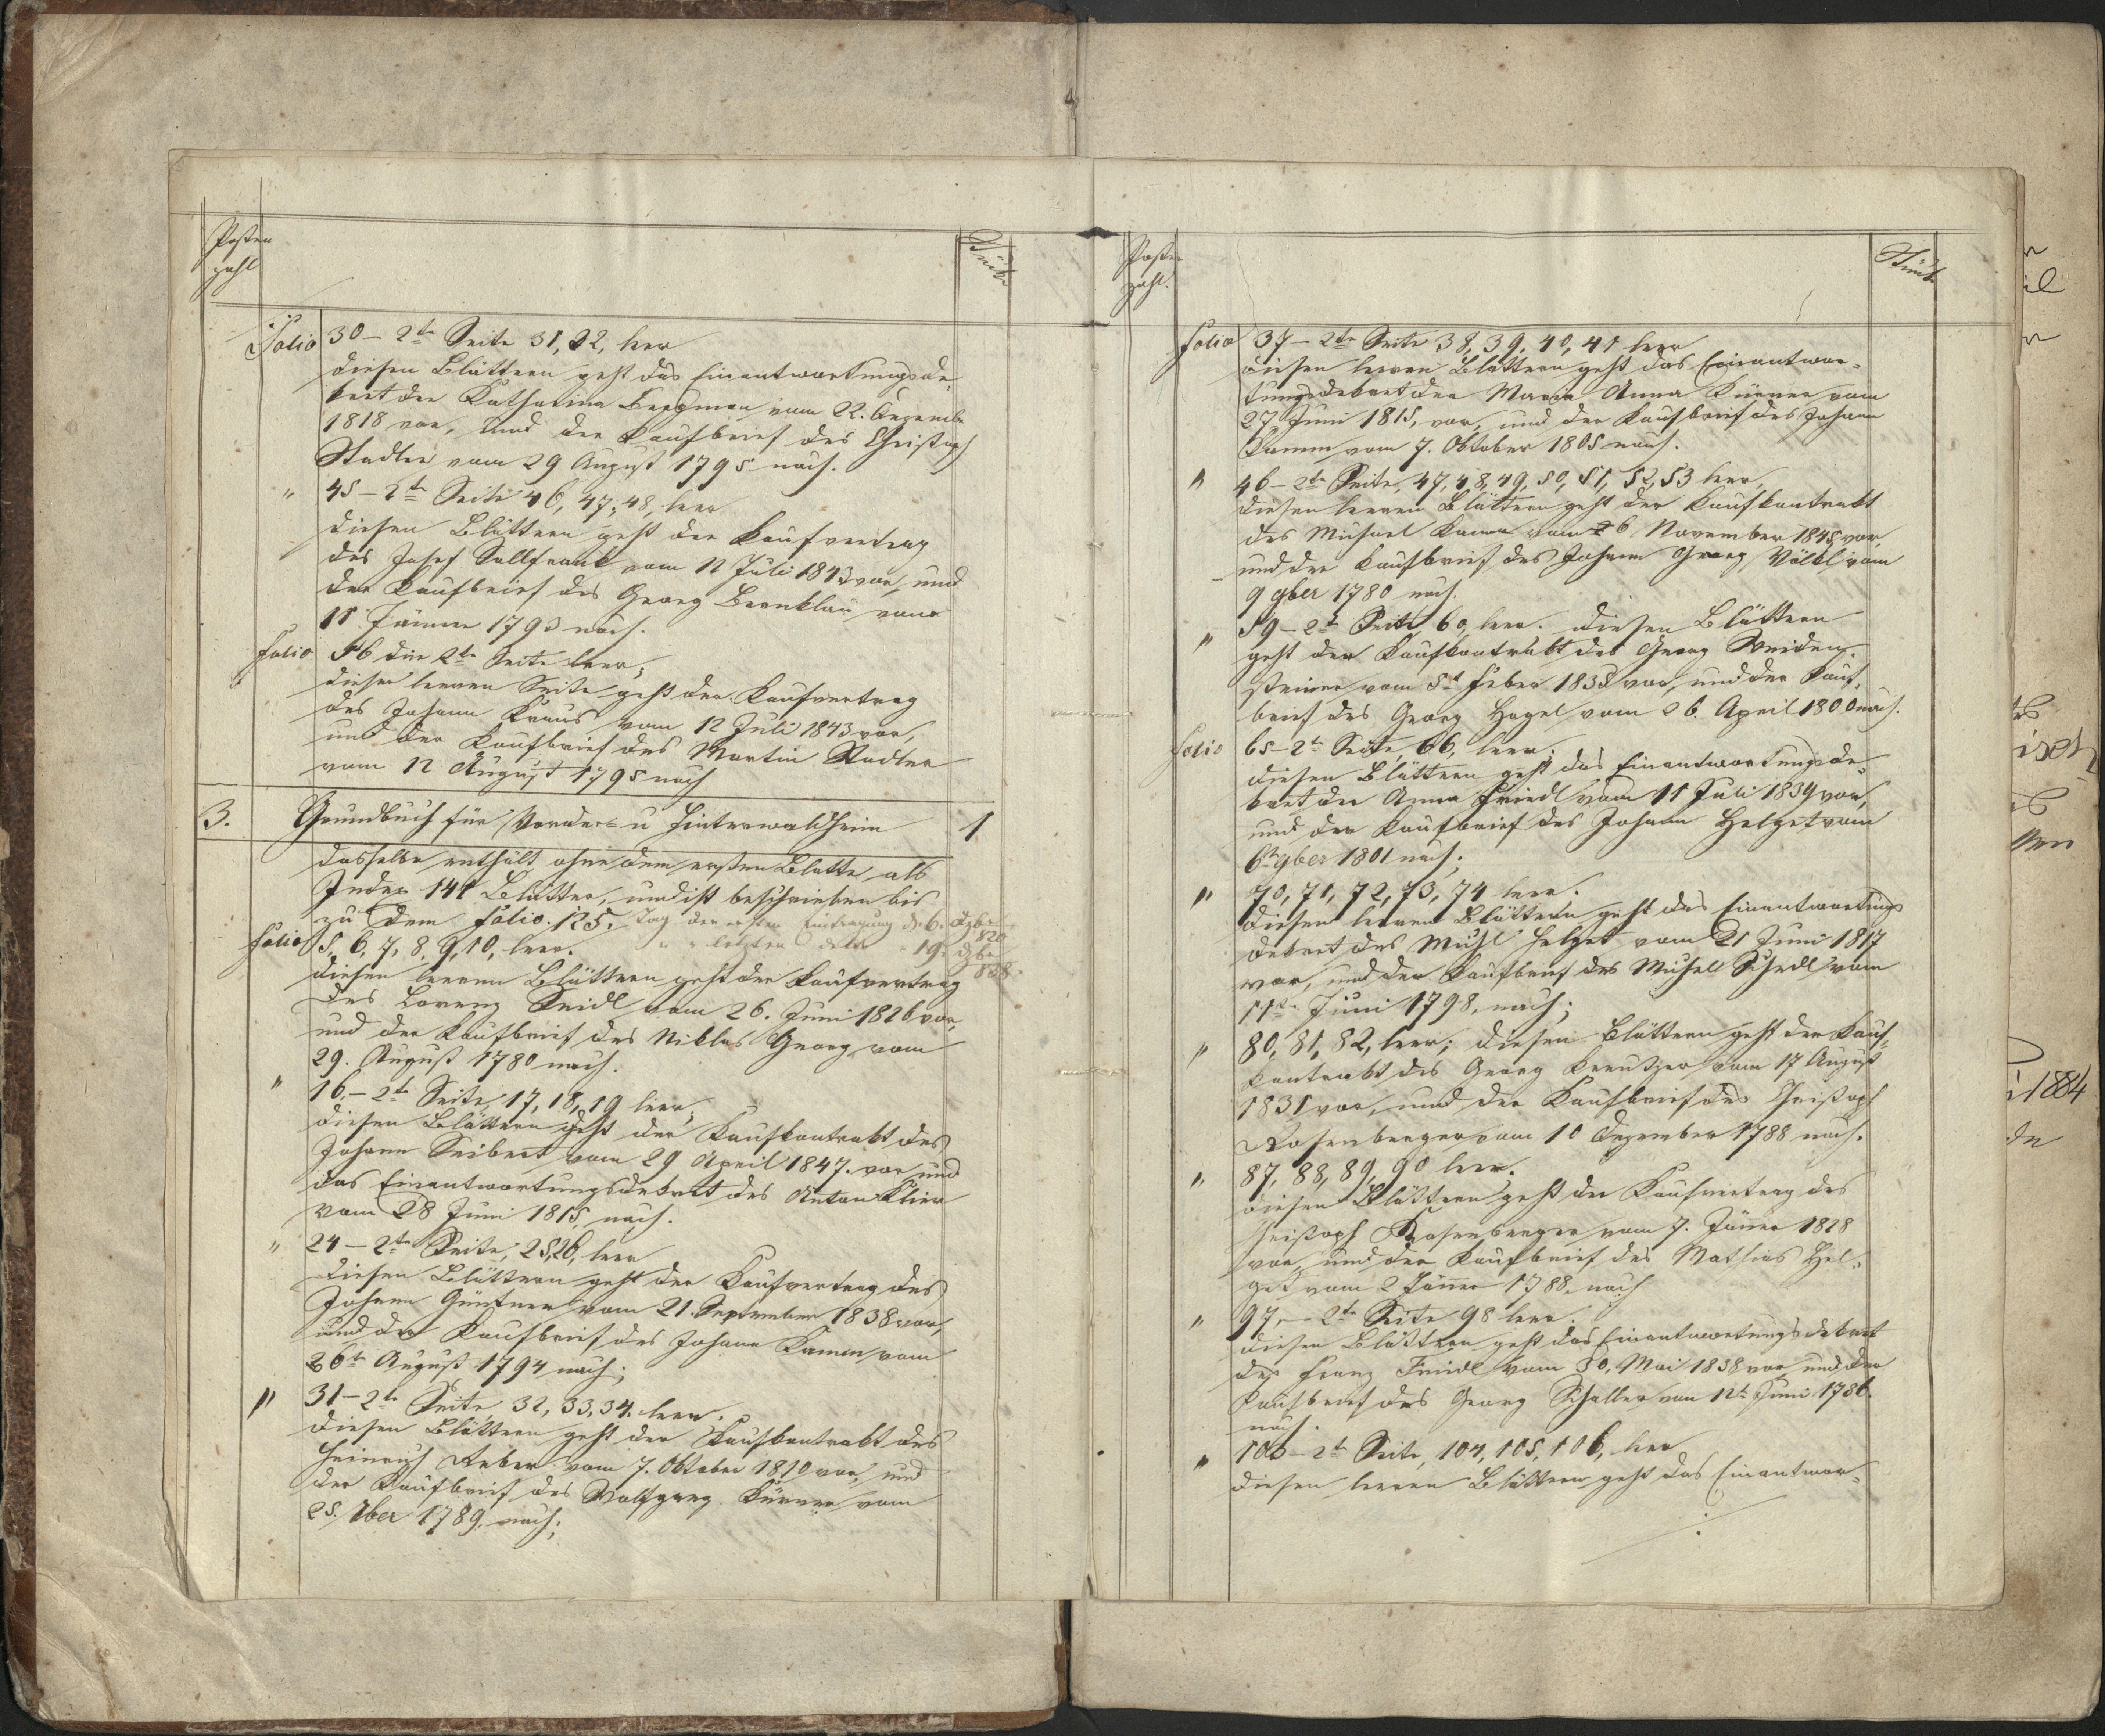 Posten
zahl
Stücke
Folio 30 – 2te Seite 31, 32, leer
diesen Blättern geht das Einantwortungsde-
kret der Katharina Bergman vom 22. Dezember
1818 vor, und der Kaufbrief des Christoph
Stadler vom 29 August 1795 nach.
" 45 – 2te Seite 46, 47, 48, leer
diesen Blättern geht der Kaufvertrag
des Josef Sollfrank vom 12 Juli 1843 vor, und
der Kaufbrief des Georg Bernklau vom
11 Jänner 1793 nach.
Folio 56 die 2te Seite leer;
dieser leeren Seite geht der Kaufvertrag
des Johann Kraus vom 12 Juli 1843 vor,
und der Kaufbrief des Martin Stadler
vom 12 August 1795 nach
3. Grundbuch für Vorder- u Hinterwaldheim 1
dasselbe enthält ohne dem ersten Blatte, als
Index 141 Blätter, und ist beschrieben bis
zu dem Folio. 125. Tag der ersten Eintragung d. 6. Dzber
1820
" " letzten detto " 19. Dzber
828.
Folio 5, 6, 7, 8, 9, 10, leer.
diesen leeren Blättern geht der Kaufvertrag
des Lorenz Seidl vom 26. Juni 1826 vor,
und der Kaufbrief des Niklas Georg vom
29. August 1780 nach.
" 16. – 2te Seite 17, 18, 19 leer;
diesen Blättern geht der Kaufkontrakt des
Johann Seibert vom 29 April 1847. vor, und
das Einantwortungsdekret des Anton Klier
vom 28 Juni 1815, nach.
" 24 – 2te Seite, 25, 26, leer
diesen Blättern geht der Kaufvertrag des
Johann Güntner vom 21. September 1838 vor,
und der Kaufbrief des Johann Kamm vom
26te August 1794 nach;
" 31 – 2te Seite 32, 33, 34. leer.
diesen Blättern geht der Kaufkontrakt des
Heinrich Reber vom 7. Oktober 1810 vor, und
der Kaufbrief des Wolfgang Kürner vom
25. 1789. nach;
Posten
zahl.
Stücke
Folio 37 – 2te Seite 38, 39, 40, 41 leer
diesen leeren Blättern geht das Einantwor-
tungsdekret der Maria Anna Kürner vom
27 Juni 1815, vor, und der Kaufbrief des Johann
Kamm vom 7. Oktober 1805 nach.
" 46 – 2te Seite, 47, 48, 49, 50, 51, 52, 53 leer,
diesen leeren Blättern geht der Kaufkontrakt
des Michael Kamm vom 26 November 1845, vor,
und der Kaufbrief des Johann Georg Völkl vom
9 9ber 1780 nach.
" 59 – 2te Seite 60, leer. diesen Blättern
geht der Kaufkontrakt des Georg Weiden-
steiner vom 5t Feber 1838 vor, und der Kauf-
brief des Georg Hagel vom 26. April 1800 nach.
Folio 65 – 2te Seite, 66, leer;
diesen Blättern geht das Einantwortungsde-
kret der Anna Friedl vom 11 Juli 1839 vor,
und der Kaufbrief des Johann Helget vom
6t 9ber 1801 nach;
" 70, 71, 72, 73, 74 leer.
diesen leeren Blättern geht das Einantwortungs
dekret des Michl Helget vom 21 Juni 1817
vor, und der Kaufbrief des Michell Schedl vom
11te Juni 1798. nach;
" 80, 81, 82, leer; diesen Blättern geht der Kauf-
kontrakt des Georg Kreutzer vom 17 August
1831 vor, und der Kaufbrief des Christoph
Rosenberger vom 10 Dezember 1788 nach.
" 87, 88, 89, 90 leer.
diesen Blättern geht der Kaufvertrag des
Christoph Rosenberger vom 7. Jänner 1828
vor, und der Kaufbrief des Mathias Hel-
get vom 2 Jänner 1788. nach
" 97, – 2te Seite 98 leer.
diesen Blättern geht das Einantwortungsdekret
des Franz Friedl vom 30. Mai 1838 vor und der
Kaufbrief des Georg Schaller vom 12te Juni 1786
nach.
" 103 – 2te Seite, 104, 105, 106, leer
diesen leeren Blättern geht das Einantwor-